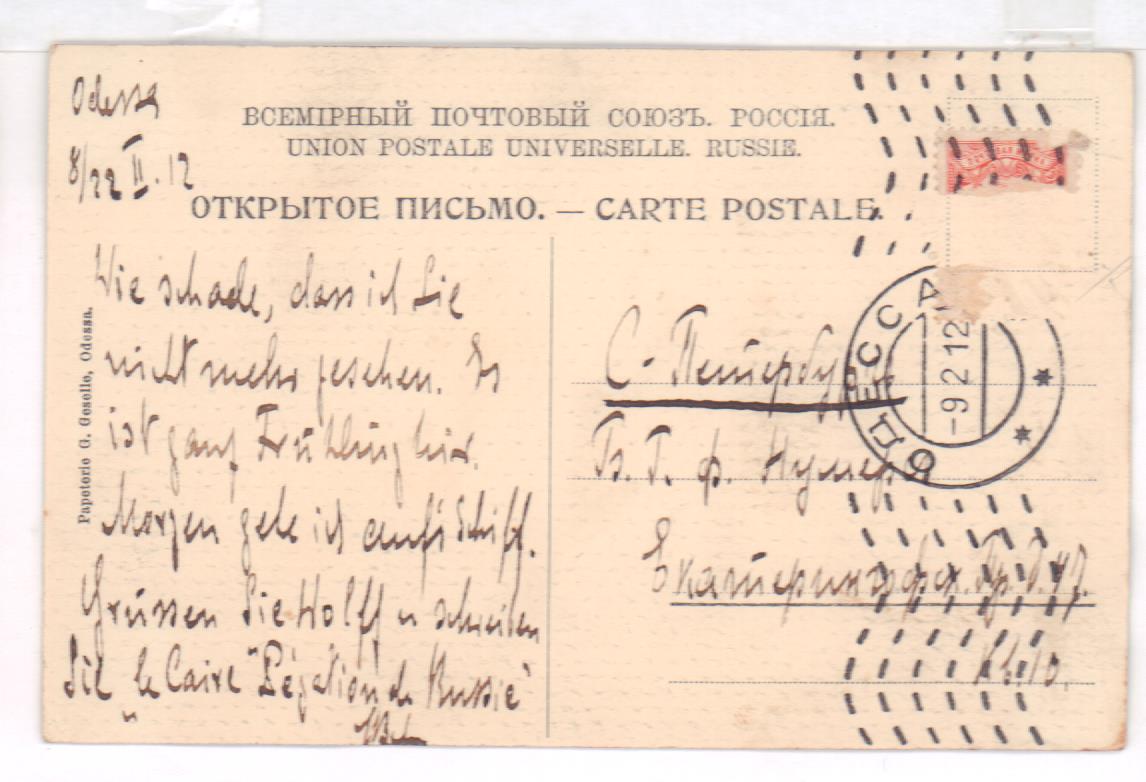 Odessa
8/22 II. 12
ВСЕМІРНЫЙ ПОЧТОВЫЙ СОЮЗЪ. РОССІЯ.
UNION POSTALE UNIVERSELLE. RUSSIE.
ОТКРЫТОЕ ПИСЬМО. — CARTE POSTALE.
Wie schade, dass ich Sie
nicht mehr gesehen. Es
ist ganz Frühling hier.
Morgen gehe ich aufs Schiff.
Grüssen Sie Wolff u schreiben
Sie le Caire "Légation de Russie"
Papeterie G. Geselle, Odessa.
С-Петербург
В. Г. ф. Нумерс
Екатерингоф. Пр. д. 47.
Кв. 10.
ОДЕССА
-9 2 12